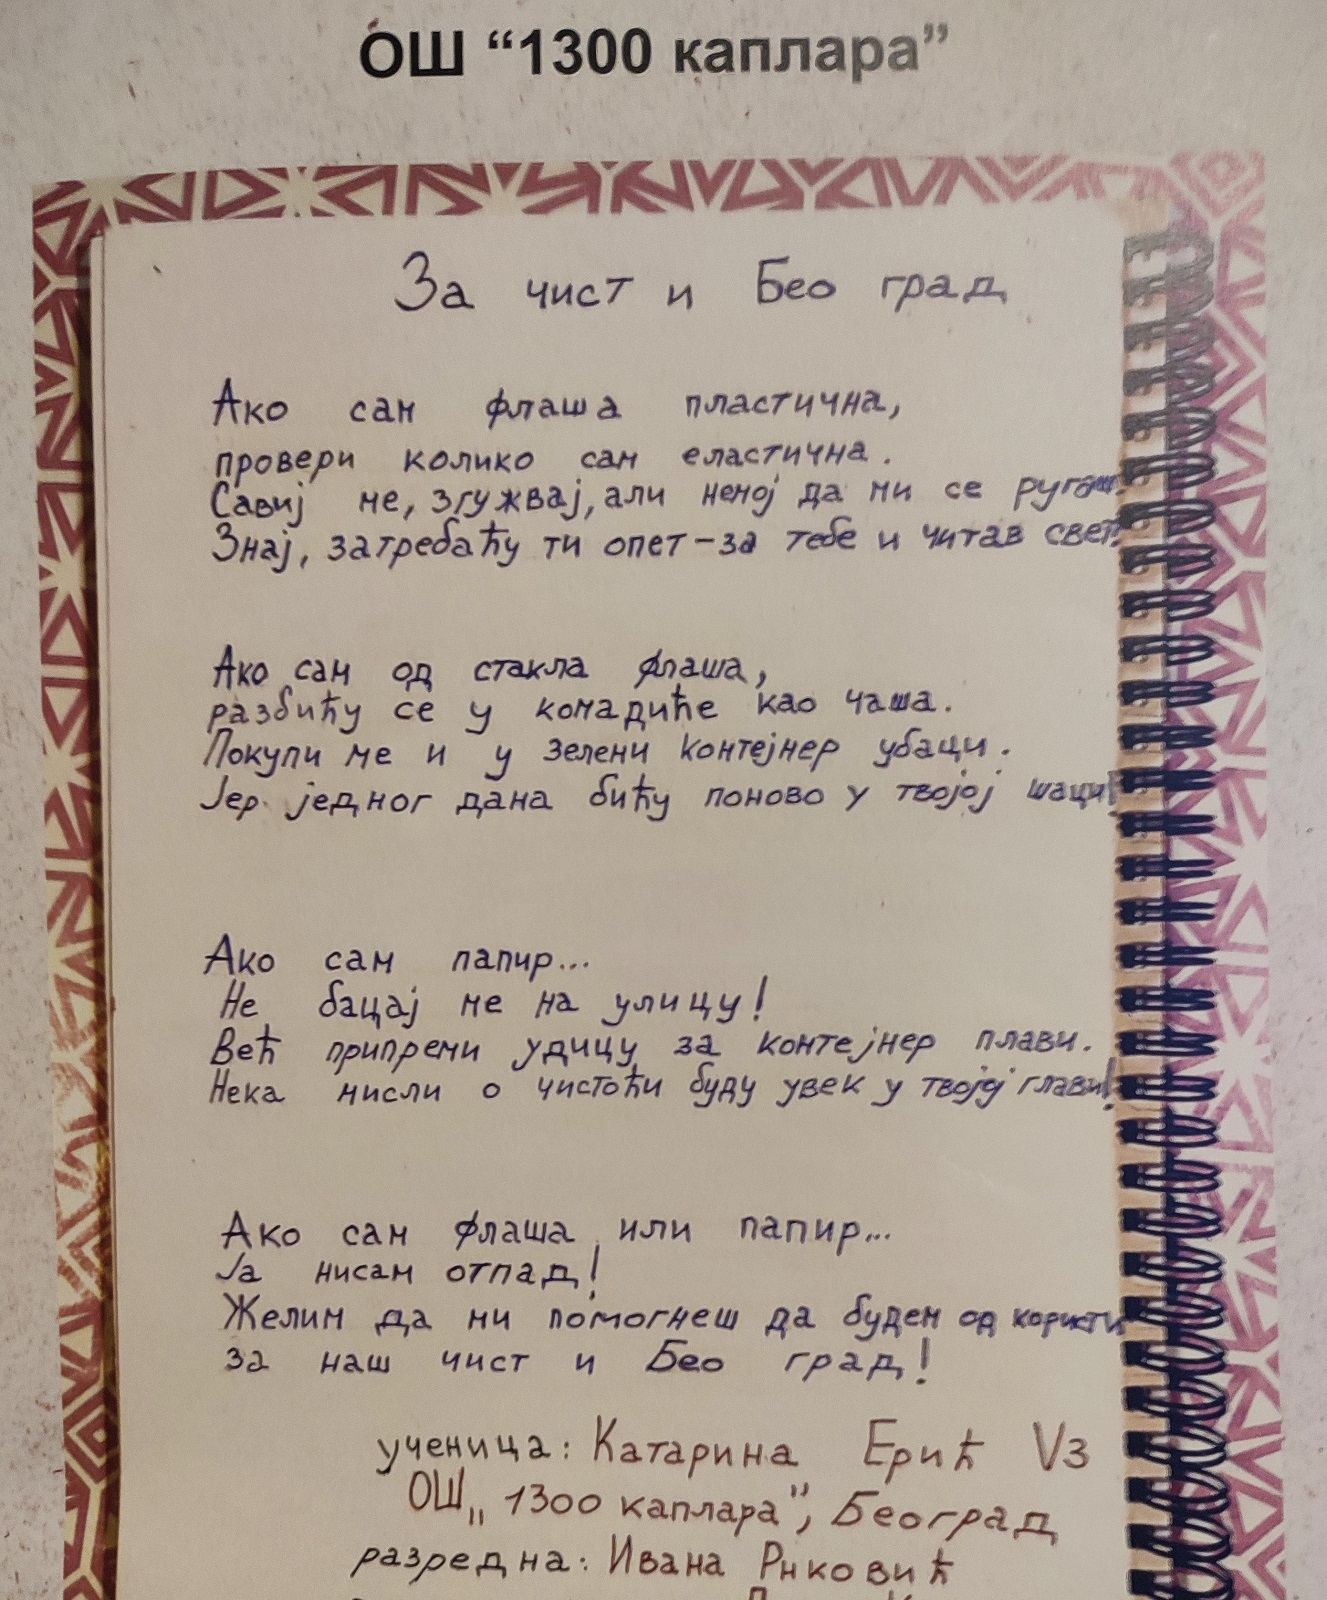 ОШ “1300 каплара”
За чист и Бео град
Ако сам флаша пластична,
провери колико сам еластична.
Савиј ме, згужвај, али немој да ми се ругаш.
Знај, затребаћу ти опет-за тебе и читав свет!
Ако сам од стакла флаша,
разбићу се у комадиће као чаша.
Покупи ме и у зелени контејнер убаци.
Јер једног дана бићу поново у твојој шаци!
Ако сам папир...
Не бацај ме на улицу!
Већ припреми удицу за контејнер плави.
Нека мисли о чистоћи буду увек у твојој глави!
Ако сам флаша или папир...
Ја нисам отпад!
Желим да ми помогнеш да будем од користи
за наш чист и Бео град!
ученица: Катарина Ерић V3
ОШ „1300 каплара”, Београд
разредна: Ивана